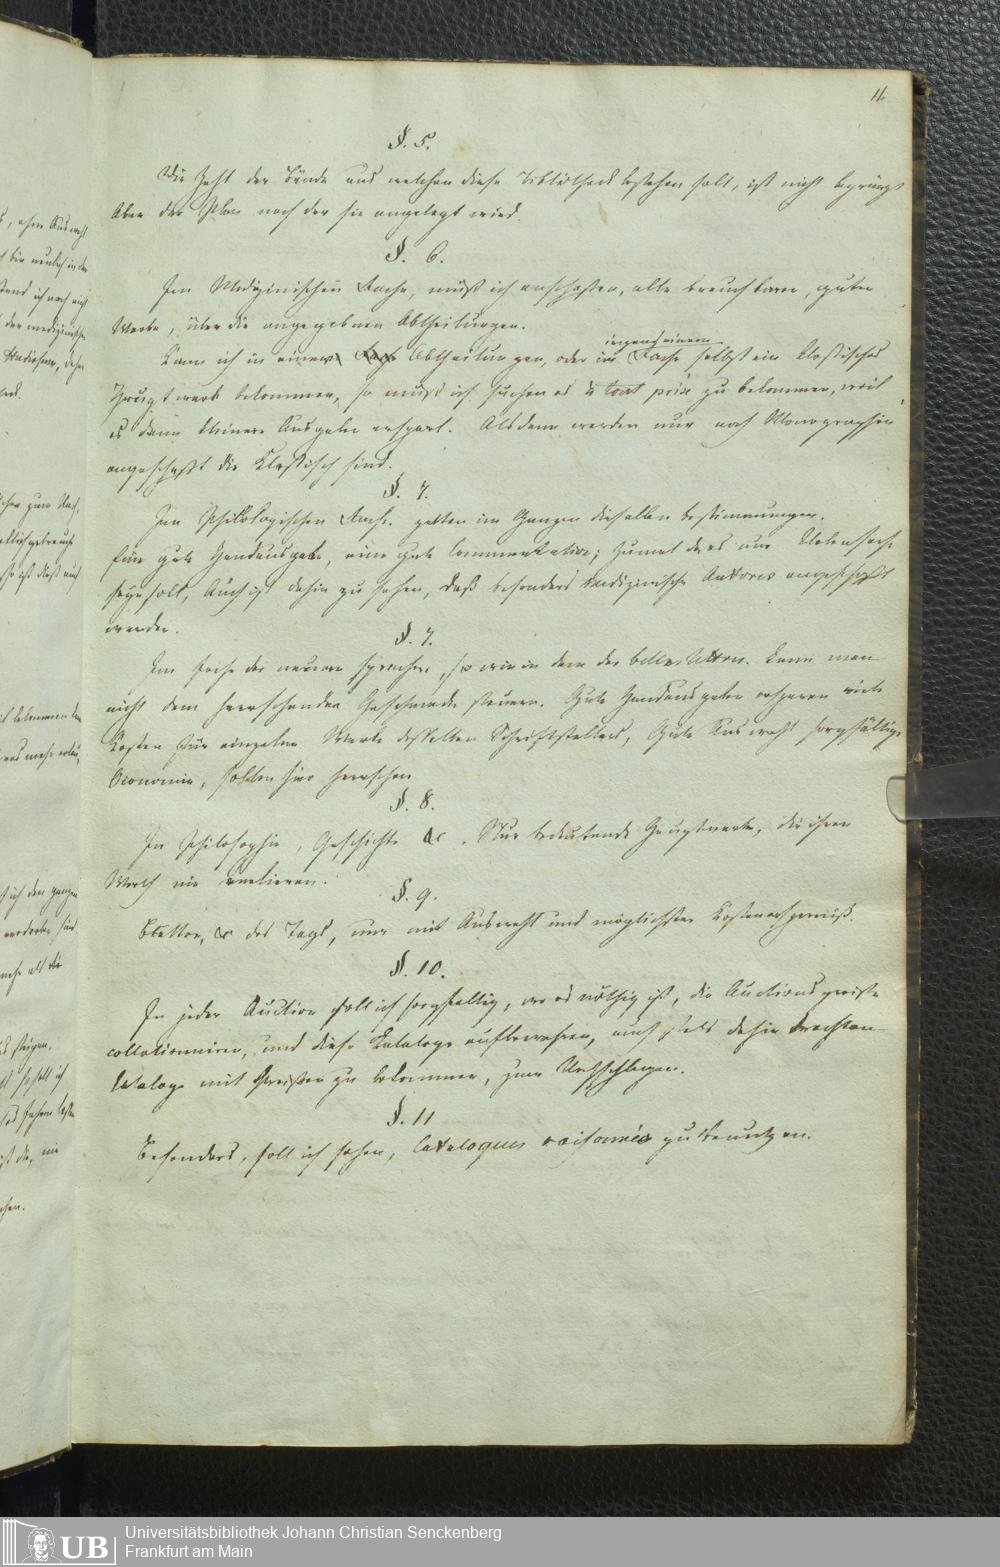 11.
§. 5.
Die Zahl der Bände aus welchen diese Bibliothek bestehen soll, ist nicht begränzt
Aber der Plan nach der sie angelegt wird.
§. 6.
Im Medizinischen Fache, muß ich anschaffen, alle brauchbaren, guten
Werke, über die angegebenen Abtheilungen.
irgend einem
Kann ich in einem Fach Abtheilungen, oder im Fache selbst ein Klassisches
Hauptwerk bekommen, so muß ich suchen es à tout prix zu bekommen, weil
es dann kleinere Ausgaben erspart. Alsdann werden nur noch Monographien
angeschafft die Klassisch sind.
§. 7.
Im Philologischen Fache. gelten im Ganzen dieselben Bestimmungen.
Eine gute Handausgabe, eine gute Commentation; zumal da es nur Nebensache
seyn soll, Auch ist dahin zu sehen, daß besonders medizinische Autores angeschafft
werden.
§. 7.
Im Fache der neuern Sprachen, so wie in dem der belles lettres. Kann man
nicht dem herrschenden Geschmack steuern. Gute Handausgaben ersparen viele
Kosten für einzelne Werke desselben Schriftstellers, Gute Auswahl sorgfältige
Oeconomie, sollen hier herrschen
§. 8.
In Philosophie, Geschichte &c. Nur bedeutende Hauptwerke, die ihren
Werth nie verlieren.
§. 9.
Blätter, &c des Tags, nur mit Auswahl und möglichster Kostenersparniß.
§. 10.
In jeder Auction soll ich sorgfältig, wo es nöthig ist, die Auctionspreise
collationniren, und diese Kataloge aufbewahren, auch stets dahin trachten
Kataloge mit Preißen zu bekommen, zum Nachschlagen.
§. 11
Besonders, soll ich sehen, Catalogues raisonnés zu benutzen.
Universitätsbibliothek Johann Christian Senckenberg
Frankfurt am Main
UB